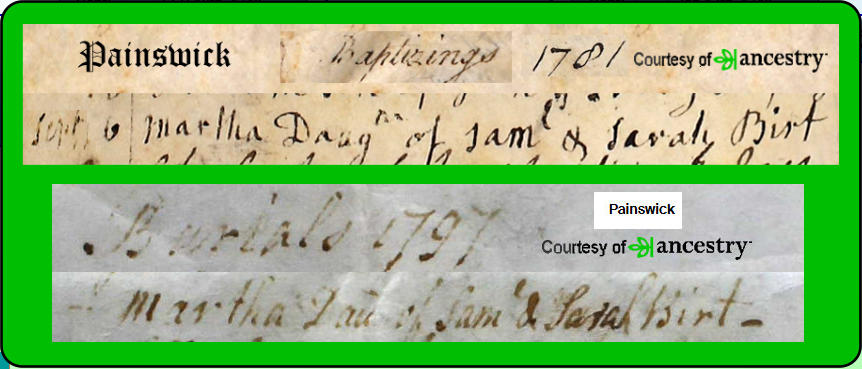 Painswick Baptizings 1781 Courtesy of ancestry
Sept 6 Martha Daugr of Saml & Sarah Birt
Painswick
Burials 1797
Courtesy of ancestry
Martha Dau of Saml & Sarah Birt -